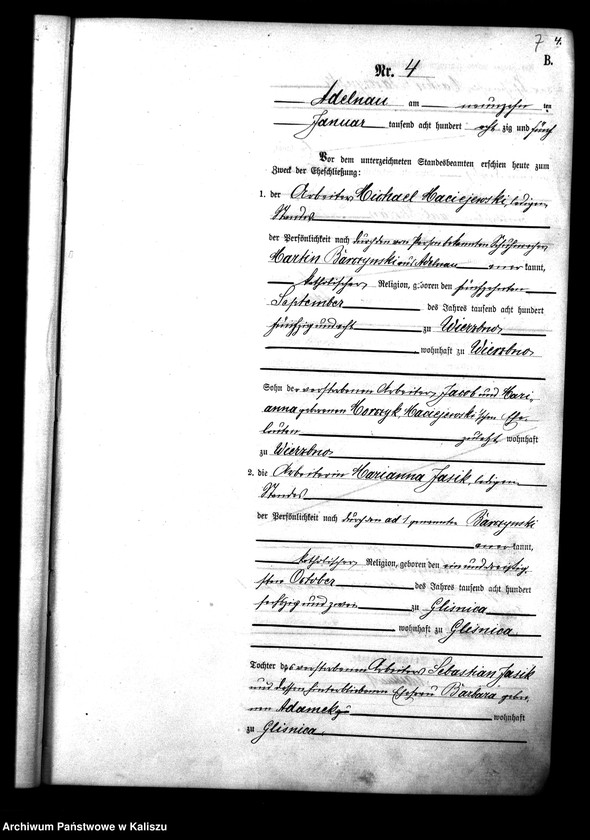 7 4.
B.
Nr. 4
Adelnau am neunzehn ten
Januar tausend acht hundert acht zig und fünf
Vor dem unterzeichneten Standesbeamten erschien heute zum
Zweck der Eheschließung:
1. der Arbeiter Michael Maciejewski, ledigen
Standes
der Persönlichkeit nach durch den von Person bekannten
Martin Barczynski aus Adelnau aner kannt,
katholischer Religion, geboren den fünfzehnten
September des Jahres tausend acht hundert
fünfzig und acht zu Wierzbno
, wohnhaft zu Wierzbno
Sohn der verstorbenen Arbeiter Jacob und Mari-
anna geborenen Maciejewski'schen Ehe-
leuten zuletzt wohnhaft
zu Wierzbno
2. die Arbeiterin Marianna Jasik, ledigen
Standes
der Persönlichkeit nach durch den ad 1 genannten Barczynski
aner kannt,
katholischer Religion, geboren den ein und dreißig
sten October des Jahres tausend acht hundert
sechzig und zwei zu Glisnica
wohnhaft zu Glisnica
Tochter des verstorbenen Arbeiters Sebastian Jasik
und dessen hinterbliebenen Ehefrau Barbara gebore-
nen Adamek wohnhaft
zu Glisnica
Archiwum Państwowe w Kaliszu